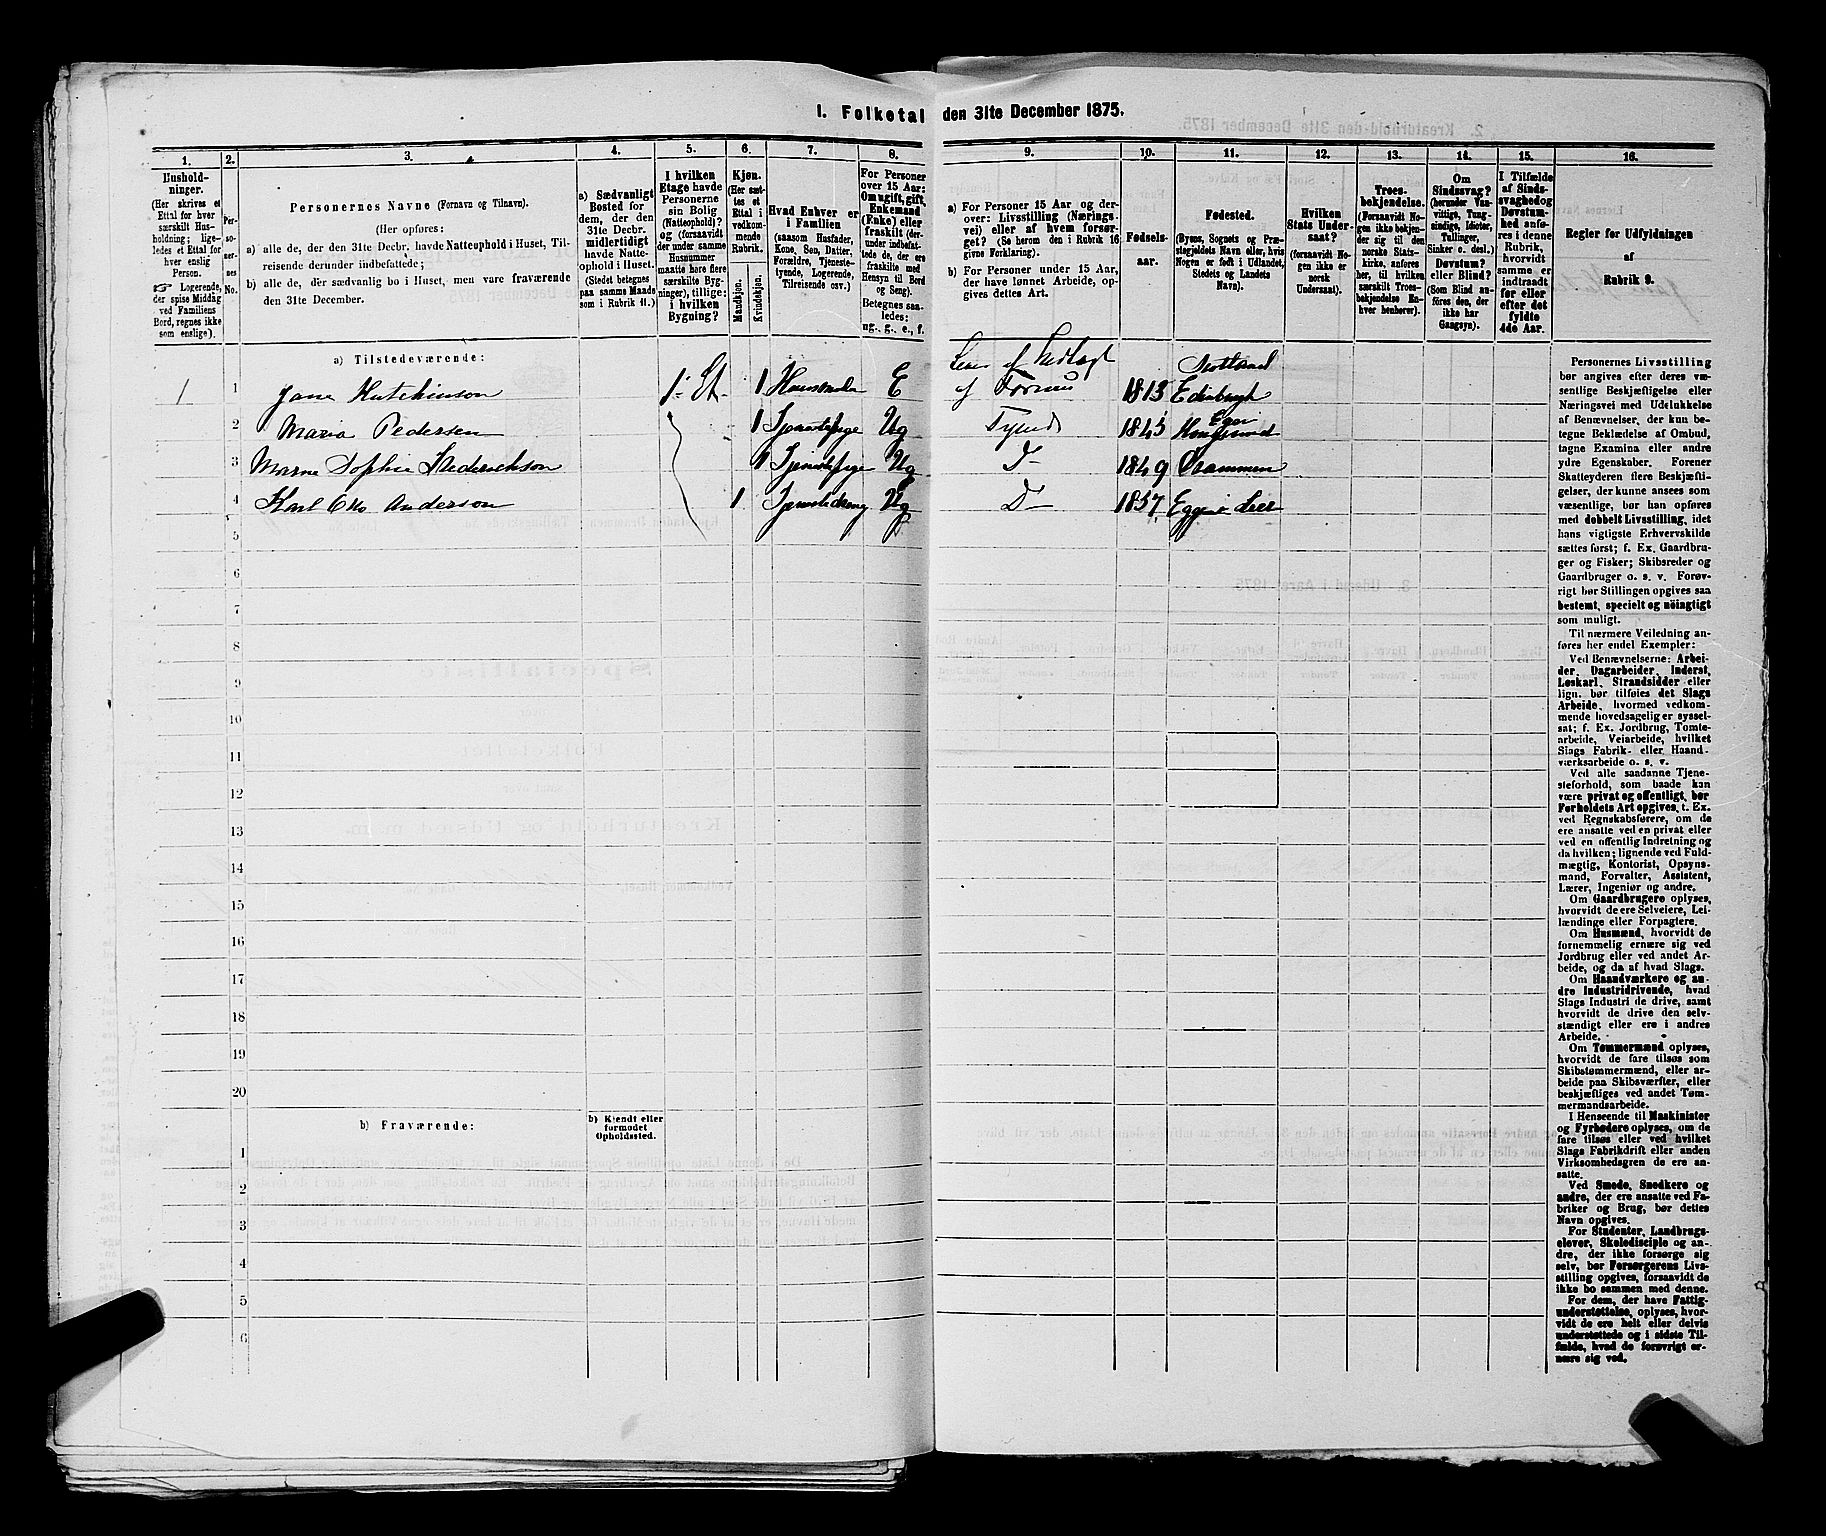 1. Folketal den 31te December 1875.
1.
2.
3.
4.
5.
6.
7.
8.
9.
10.
11.
12.
13.
14.
15.
16.
Hushold-
ninger.
(Her skrives et
Ettal for hver
særskilt Hus-
holdning; lige-
ledes et Ettal for
hver enslig
Person.
☞ Logerende,
der spise Middag
ved Familiens
Bord, regnes ikke
som enslige).
Per-
so-
ner-
nes
No.
Personernes Navne (Fornavn og Tilnavn).
(Her opføres:
a) alle de, der den 31te Decbr. havde Natteophold i Huset, Til-
reisende derunder indbefattede;
b) alle de, der sædvanlig bo i Huset, men vare fraværende
den 31te December.
a) Sædvanligt
Bosted for
dem, der den
31te Decbr.
midlertidigt
havde Natte-
ophold i Huset.
(Stedet betegnes
paa samme Maade
som i Rubrik 11.)
I hvilken
Etage havde
Personerne
sin Bolig
(Natteophold)?
og (forsaavidt
der under samme
Husnummer
maatte høre flere
særskilte Byg-
ninger), tillige:
i hvilken
Bygning?
Kjøn.
(Her sæt-
tes et
Ettal i
vedkom-
mende
Rubrik.
Mandkjøn.
Kvindekjøn.
Hvad Enhver er
i Familien
(saasom Husfader,
Kone, Søn, Datter,
Forældre, Tjeneste-
tyende, Logerende,
Tilreisende osv.)
For Personer
over 15 Aar:
Om ugift, gift,
Enkemand
(Enke) eller
fraskilt (der-
under indbefat-
tede de, der ere
fraskilte med
Hensyn til Bord
og Seng).
Betegnes saa-
ledes:
ug., g., e., f.
a) For Personer 15 Aar og der-
over: Livsstilling (Nærings-
vei) eller af hvem forsør-
get? (Se herom den i Rubrik 16
givne Forklaring).
b) For Personer under 15 Aar,
der have lønnet Arbeide, op-
gives dettes Art.
Fødsels-
aar.
Fødested.
(Byens, Sognets og Præ-
stegjeldets Navn eller, hvis
Nogen er født i Udlandet,
Stedets og Landets
Navn).
Hvilken
Stats Under-
saat?
(forsaavidt No-
gen ikke er
norsk
Undersaat).
Troes-
bekjendelse.
(Forsaavidt No-
gen ikke bekjen-
der sig til den
norske Stats-
kirke, anføres
her, til hvilken
særskilt Troes-
bekjendelse En-
hver henhører).
Om
Sindssvag?
(herunder Van-
vittige, Tung-
sindige, Idioter,
Tullinger,
Sinker o. desl.)
Døvstum?
eller Blind?
(Som Blind an-
føres den, der
ikke har
Gangsyn).
I Tilfælde
af Sinds-
svaghed og
Døvstum-
hed anfø-
res i denne
Rubrik,
hvorvidt
samme er
indtraadt
før eller
efter det
fyldte
4de Aar.
Regler for Udfyldningen
af
Rubrik 9.
a) Tilstedeværende:
1 1 Jane Hutchinson 1. Et. 1 E Lever af af 1813 Scotland
2 Maria Pedersen 1 Tjenestepige Ug Tyende 1843 Eger
3 Sophie 1 Tjenestepige Ug D- 1849 Drammen
4 Karl Anderson 1 Ug D- 1857 Lier
5
6
7
8
9
10
11
12
13
14
15
16
17
18
19
20
b) Fraværende:
b) Kjendt eller
formodet
Opholdssted.
1
2
3
4
5
6
Personernes Livsstilling
bør angives efter deres væ-
sentlige Beskjæftigelse eller
Næringsvei med Udelukkelse
af Benævnelser, der kun be-
tegne Beklædelse af Ombud,
tagne Examina eller andre
ydre Egenskaber. Forener
Skatteyderen flere Beskjæfti-
gelser, der kunne ansees som
væsentlige, bør han opføres
med dobbelt Livsstilling, idet
hans vigtigste Erhvervskilde
sættes først; f. Ex. Gaardbru-
ger og Fisker; Skibsreder og
Gaardbruger o. s. v. Forøv-
rigt bør Stillingen opgives saa
bestemt, specielt og nöiagtigt
som muligt.
Til nærmere Veiledning an-
føres her endel Exempler:
Ved Benævnelserne: Arbei-
der, Dagarbeider, Inderst,
Løskarl, Strandsidder eller
lign. bør tilføies det Slags
Arbeide, hvormed vedkom-
mende hovedsagelig er syssel-
sat; f. Ex. Jordbrug, Tomte-
arbeide, Veiarbeide, hvilket
Slags Fabrik- eller Haand-
værksarbeide o. s. v.
Ved alle saadanne Tjene-
steforhold, som baade kan
være privat og offentligt, bør
Forholdets Art opgives, t. Ex.
ved Regnskabsførere, om de
ere ansatte ved en privat eller
ved en offentlig Indretning og
da hvilken; lignende ved Fuld-
mægtig, Kontorist, Opsyns-
mand, Forvalter, Assistent,
Lærer, Ingeniør og andre.
Om Gaardbrugere oplyses,
hvorvidt de ere Selveiere, Lei-
lændinge eller Forpagtere.
Om Husmænd, hvorvidt de
fornemmelig ernære sig ved
Jordbrug eller ved andet Ar-
beide, og da af hvad Slags.
Om Haandværkere og an-
dre Industridrivende, hvad
Slags Industri de drive, samt
hvorvidt de drive den selv-
stændigt eller ere i andres
Arbeide.
Om Tømmermænd oplyses,
hvorvidt de fare tilsøs som
Skibstømmermænd, eller ar-
beide paa Skibsværfter, eller
beskjæftiges ved andet Tøm-
mermandsarbeide.
I Henseende til Maskinister
og Fyrbødere oplyses, om de
fare tilsøs eller ved hvilket
Slags Fabrikdrift eller anden
Virksomhedsgren de ere an-
satte.
Ved Smede, Snedkere og
andre, der ere ansatte ved Fa-
briker og Brug, bør dettes
Navn opgives.
For Studenter, Landbrugs-
elever, Skoledisciple og an-
dre, der ikke forsørge sig
selv, bør Forsørgerens Livs-
stilling opgives, forsaavidt de
ikke bo sammen med denne.
For dem, der have Fattig-
understøttelse, oplyses, hvor-
vidt de ere helt eller delvis
understøttede og i sidste Til-
fælde, hvad de forøvrigt er-
nære sig ved.